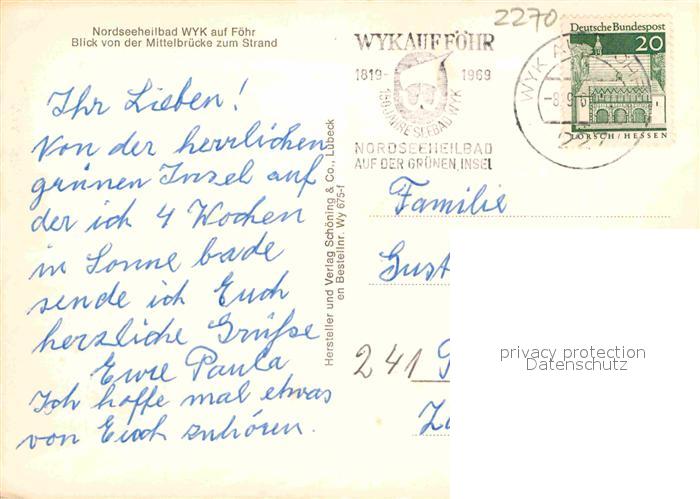 Nordseeheilbad WYK auf Föhr
Blick von der Mittelbrücke zum Strand
Ihr Lieben!
Von der herrlichen
grünen Insel auf
der ich 4 Wochen
in Sonne bade
sende ich Euch
herzliche Grüße
Eure Paula
Ich hoffe mal etwas
von Euch zuhören.
Hersteller und Verlag Schöning & Co., Lübeck
en Bestellnr. Wy 675-f
2270
WYK AUF FÖHR
1819- 1969
150 JAHRE SEEBAD WYK
NORDSEEHEILBAD
AUF DER GRÜNEN INSEL
WYK AUF FÖHR
Deutsche Bundespost
20
LORSCH/HESSEN
Familie
Gust
241
privacy protection
Datenschutz